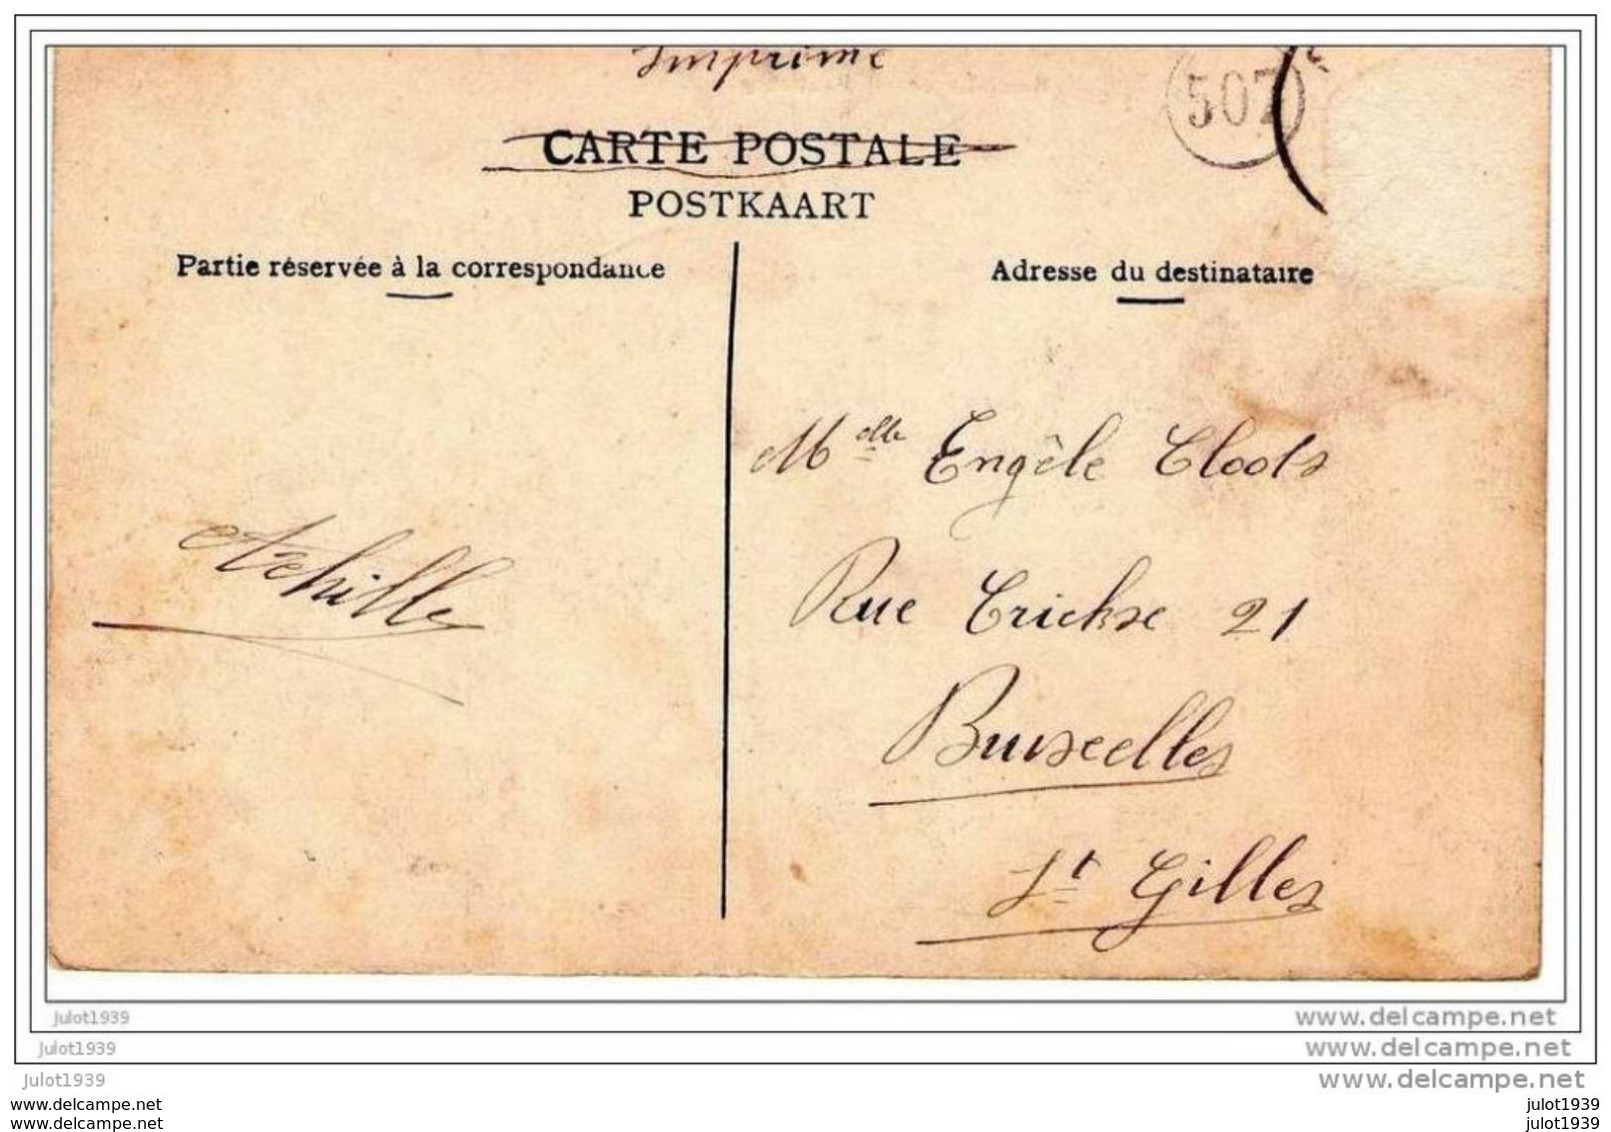 Imprimé
507
CARTE POSTALE
POSTKAART
Partie réservée à la correspondance
Adresse du destinataire
Achille
Melle Engèle Cloots
Rue Crickx 21
Bruxelles
St Gilles
julot1939
www.delcampe.net
julot1939
www.delcampe.net
julot1939
www.delcampe.net
www.delcampe.net
julot1939
www.delcampe.net
julot1939